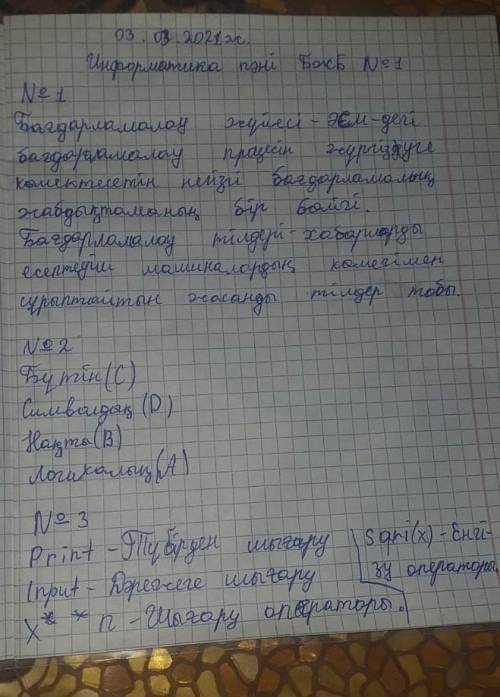 03.03.2021ж.
Информатика пәні БЖБ №1
№1
Бағдарламалау жүйесі - ЭЕМ-дегі
бағдарламалау процесін жүргізуге
көмектесетін негізгі бағдарламалық
жабдықтаманың бір бөлігі.
Бағдарламалау тілдері - хабарларды
есептеуіш машиналардың көмегімен
сұрыптайтын жасанды тілдер тобы.
№2
Бүтін (C)
Символдық (D)
Нақты (B)
Логикалық (A)
№3
Print - Түбірден шығару
Input - Дәрежеге шығару
x**n - Шығару операторы.
sqri(x) - Енгі-
зу операторы.